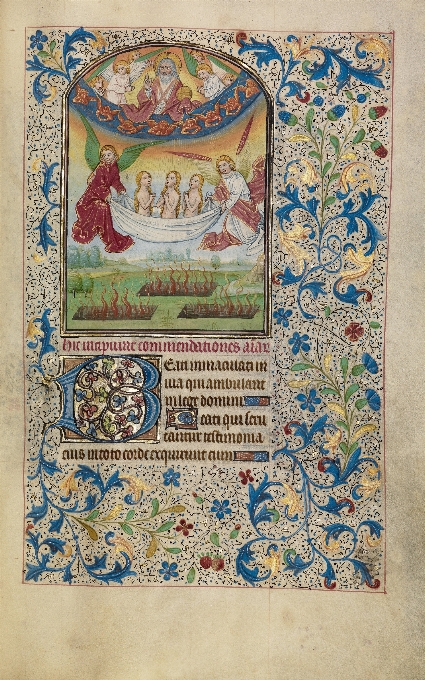 Hic incipiunt commendationes aiar
Beati inmaculati in
via qui ambulant
in lege domini
Beati qui scru
tantur testimonia
eius in toto corde exquirunt eum